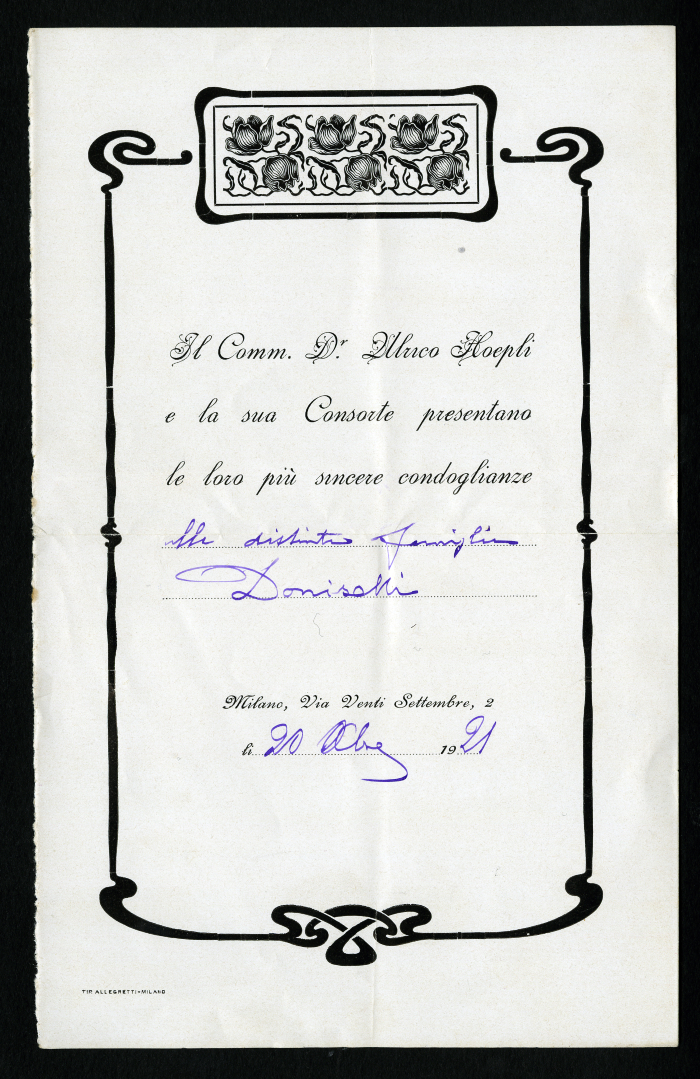 Il Comm. Dr. Ulrico Hoepli
e la sua Consorte presentano
le loro più sincere condoglianze
alla distinta famiglia
Doniselli
Milano, Via Venti Settembre, 2
lì 20 Obre 1921
TIP. ALLEGRETTI-MILANO